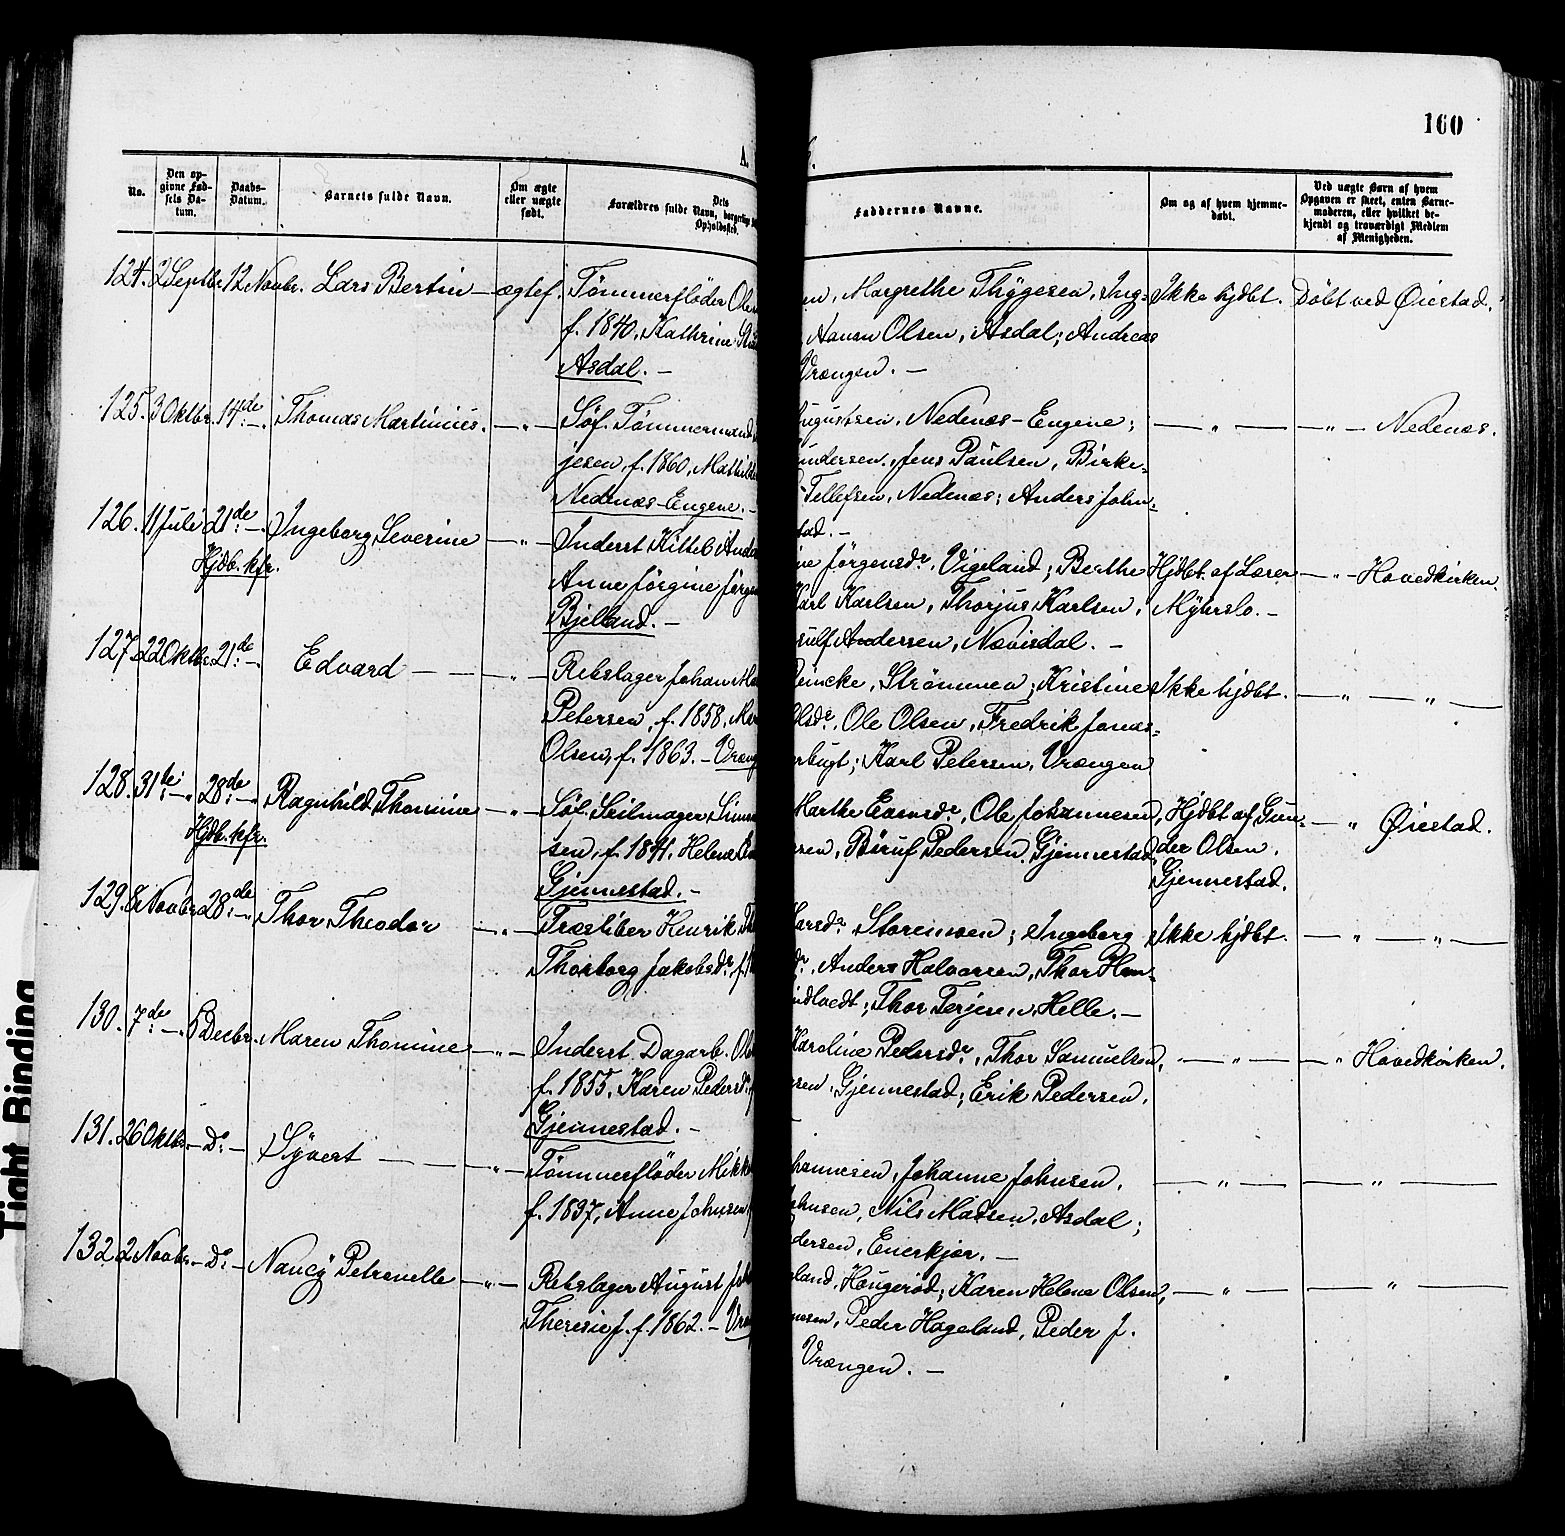 160
A.
No.
Den op-
givne Fød-
sels Da-
tum.
Daabs-
Datum.
Barnets fulde Navn.
Om ægte
eller uægte
født.
Dets
Forældres fulde Navn, borgerlige
Opholdssted.
Faddernes Navne.
Om og af hvem hjemme-
døbt.
Ved uægte Børn af hvem
Opgaven er skeet, enten Barne-
moderen, eller hvilket be-
kjendt og troværdigt Medlem
af Menigheden.
124. 2 Septbr. 12 Novbr. Lars Bertin — ægtef. Tømmerfløder
f. 1840, Kathrine
Asdal. —
en, Margrethe Thygesen, Ing=
Hanen Olsen, Asdal; Andreas
Vrængen. —
Ikke hjdbt. Døbt ved Øiestad.
125. 3 Oktbr. 14de —. Thomas Martinius. —„— Søf. Tømmermand
jesen, f. 1860, Mathilde
Nedenæs-Engene. —
ugustsen, Nedenæs-Engene;
undersen, Jens Paulsen, Birke=
Tellefsen, Nedenæs; Anders John=
tad. —
— „ — — „ — Nedenæs.
126. 11 Juli 21de —. Ingeborg Severine —„— Inderst Kittel
Hjdb. kfr.
Anne Jørgine
Bjelland. —
ne Jørgensdr, Vigeland; Berthe
Karl Karlsen, Thorjus Karlsen,
ulf Andersen, Nævisdal. —
Hjdbt. af Lærer
Myhrslo. —
— „ — Hovedkirken.
127. 22 Oktbr. 21de —. Edvard — —„— Rebslager Johan
Petersen, f. 1858,
Olsen, f. 1863. —
eincke, Strømmen; Kristine
Olsdr, Ole Olsen, Fredrik Jonas=
erbugt; Karl Petersen, Vrængen
Ikke hjdbt. — „ — „ —
128. 31te —„ 28de —„ Ragnhild Thomine —„— Søf. Seilmager
Hjdb. kfr.
sen, f. 1841, Helene
Gjennestad. —
Marthe Evensdr, Ole Johannesen,
sen, Børuf Pedersen, Gjennestad.
Hjdbt af Gun=
der Olsen,
Gjennestad.
— „ Øiestad.
129. 8 Novbr. 28de —„ Thor Theodor —„— Træsliber Henrik
Thorborg Jakobsdr f.
Storemoen; Ingeborg
dr, Anders Halvorsen, Thor Hen=
Thor Terjesen, Helle. —
Ikke hjdbt. — „ — „ —
130. 7de —. 5 Decbr. Maren Thomine —„— Inderst. Dagarb.
f. 1855, Karen Pedersdr,
Gjennestad. —
Karoline Pedersdr, Thor Samuelsen,
sen, Gjennestad; Erik Pedersen,
— „ — — „ Hovedkirken.
131. 26 Oktbr. — Do — Syvert — — „— Tømmerfløder
f. 1837, Anne Johnsen,
hannesen, Johanne Johnsen,
ohnsen, Nils Madsen, Asdal;
dersen, Enerkjær. —
— „ — — „ —
132. 2 Novbr. — Do — Nancy Petronelle —„— Rebslager August
Theresie J. f. 1862. —
eland, Haugerød; Karen Helene Olsen,
nesen, Peder Hageland, Peder J.
Vrængen. —
— „ — — „ —
Tight Binding